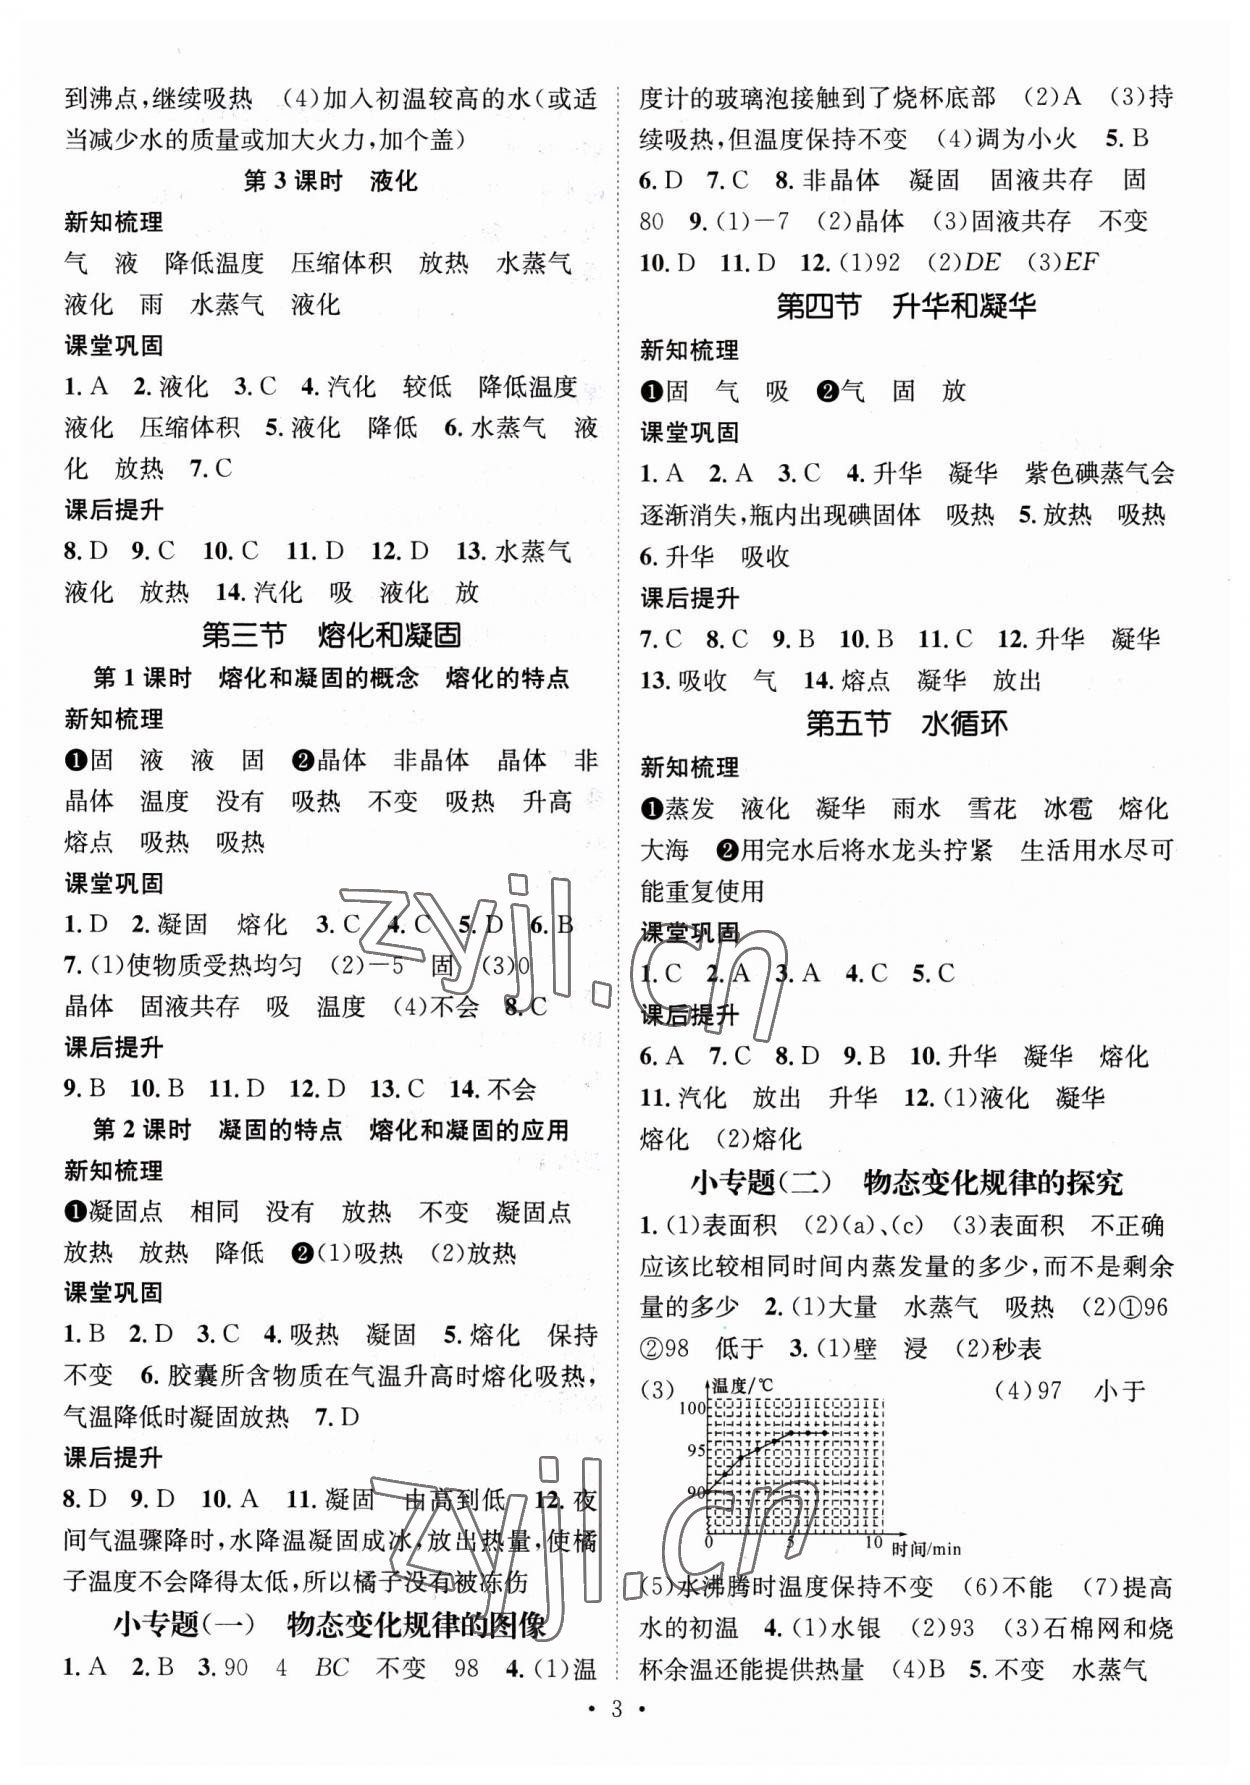 到沸点,继续吸热　(4)加入初温较高的水(或适
当减少水的质量或加大火力,加个盖)
第 3 课时　液化
新知梳理
气　液　降低温度　压缩体积　放热　水蒸气
液化　雨　水蒸气　液化
课堂巩固
1. A　2. 液化　3. C　4. 汽化　较低　降低温度
液化　压缩体积　5. 液化　降低　6. 水蒸气　液
化　放热　7. C
课后提升
8. D　9. C　10. C　11. D　12. D　13. 水蒸气
液化　放热　14. 汽化　吸　液化　放
第三节　熔化和凝固
第 1 课时　熔化和凝固的概念　熔化的特点
新知梳理
❶固　液　液　固　❷晶体　非晶体　晶体　非
晶体　温度　没有　吸热　不变　吸热　升高
熔点　吸热　吸热
课堂巩固
1. D　2. 凝固　熔化　3. C　4. C　5. D　6. B
7. (1)使物质受热均匀　(2)－5　固　(3)0
晶体　固液共存　吸　温度　(4)不会　8. C
课后提升
9. B　10. B　11. D　12. D　13. C　14. 不会
第 2 课时　凝固的特点　熔化和凝固的应用
新知梳理
❶凝固点　相同　没有　放热　不变　凝固点
放热　放热　降低　❷(1)吸热　(2)放热
课堂巩固
1. B　2. D　3. C　4. 吸热　凝固　5. 熔化　保持
不变　6. 胶囊所含物质在气温升高时熔化吸热,
气温降低时凝固放热　7. D
课后提升
8. D　9. D　10. A　11. 凝固　由高到低　12. 夜
间气温骤降时,水降温凝固成冰,放出热量,使橘
子温度不会降得太低,所以橘子没有被冻伤
小专题(一)　物态变化规律的图像
1. A　2. B　3. 90　4　BC　不变　98　4. (1)温
度计的玻璃泡接触到了烧杯底部　(2)A　(3)持
续吸热,但温度保持不变　(4)调为小火　5. B
6. D　7. C　8. 非晶体　凝固　固液共存　固
80　9. (1)－7　(2)晶体　(3)固液共存　不变
10. D　11. D　12. (1)92　(2)DE　(3)EF
第四节　升华和凝华
新知梳理
❶固　气　吸　❷气　固　放
课堂巩固
1. A　2. A　3. C　4. 升华　凝华　紫色碘蒸气会
逐渐消失,瓶内出现碘固体　吸热　5. 放热　吸热
6. 升华　吸收
课后提升
7. C　8. C　9. B　10. B　11. C　12. 升华　凝华
13. 吸收　气　14. 熔点　凝华　放出
第五节　水循环
新知梳理
❶蒸发　液化　凝华　雨水　雪花　冰雹　熔化
大海　❷用完水后将水龙头拧紧　生活用水尽可
能重复使用
课堂巩固
1. C　2. A　3. A　4. C　5. C
课后提升
6. A　7. C　8. D　9. B　10. 升华　凝华　熔化
11. 汽化　放出　升华　12. (1)液化　凝华
熔化　(2)熔化
小专题(二)　物态变化规律的探究
1. (1)表面积　(2)(a)、(c)　(3)表面积　不正确
应该比较相同时间内蒸发量的多少,而不是剩余
量的多少　2. (1)大量　水蒸气　吸热　(2)①96
②98　低于　3. (1)壁　浸　(2)秒表
(3)　温度/℃　(4)97　小于
100
95
90
0　5　10　时间/min
(5)水沸腾时温度保持不变　(6)不能　(7)提高
水的初温　4. (1)水银　(2)93　(3)石棉网和烧
杯余温还能提供热量　(4)B　5. 不变　水蒸气
• 3 •
zyjl.cn
zyjl.cn